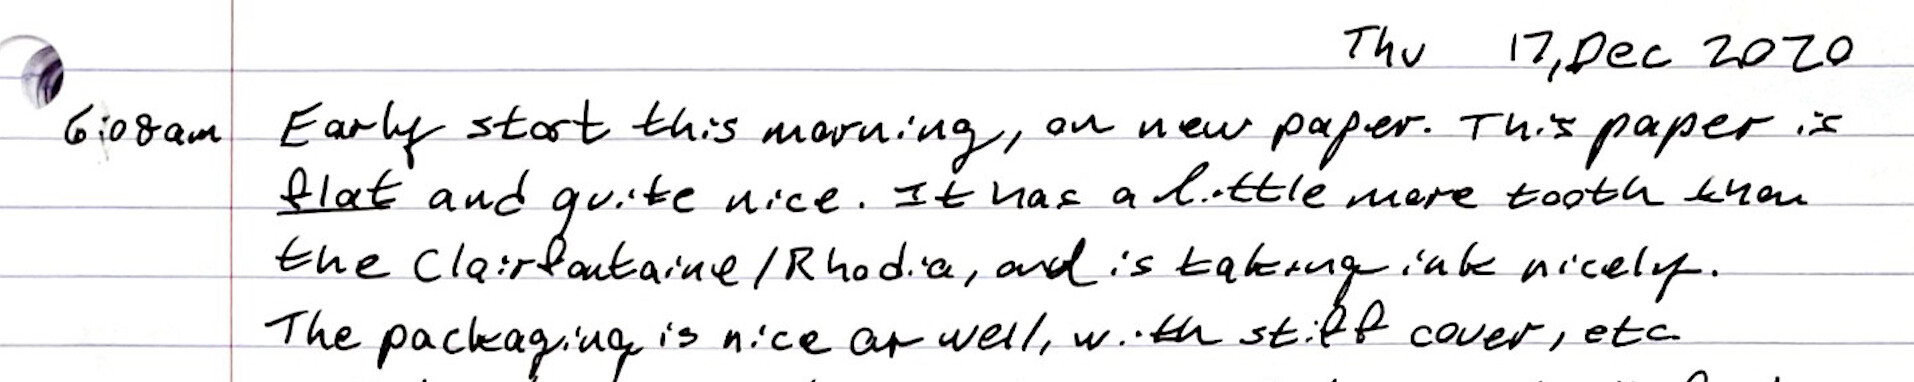 Thu 17, Dec 2020
6:08am Early start this morning, on new paper. This paper is
flat and quite nice. It has a little more tooth than
the Clairfontaine/Rhodia, and is taking ink nicely.
The packaging is nice as well, with stiff cover, etc